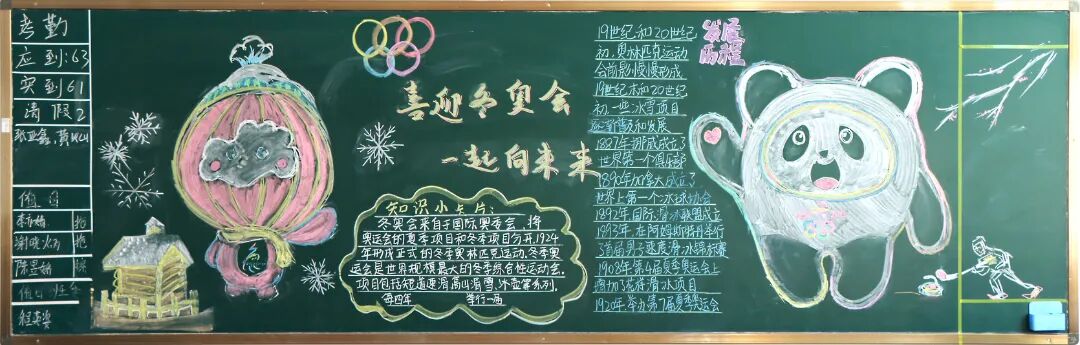 考勤
应到:63
实到61
请假2
喜迎冬奥会
一起向未来
知识小卡片:
冬奥会来自于国际奥委会,将
奥运会的夏季项目和冬季项目分开,1924
年形成正式的冬季奥林匹克运动,冬季奥
运会是世界规模最大的冬季综合性运动会,
项目包括短道速滑高山滑雪、冰壶等系列,
每四年 举行一届
急
发展
历程
19世纪和20世纪
初,奥林匹克运动
会前影慢慢形成
19世纪末和20世纪
初,一些冰雪项目
逐渐普及和发展
1887年挪威成立了
世界第一个俱乐部
1890年加拿大成立了
世界上第一个冰球协会
1892年国际滑冰联盟成立
1993年在阿姆斯特丹举行
了首届男子速度滑冰锦标赛
1908年第4届夏季奥运会上
增加了花样滑冰项目
1920年举办第7届夏季奥运会